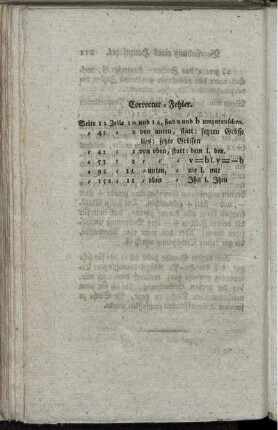 Correctur-Fehler.
Seite 12 Zeile 10 und 14, sind v und b umzutauschen.
" 41 " 2 von unten, statt: setzten Grösse
lies: setze Grössen
" 42 " " von oben, statt: dem l. den.
" 53 " 2 " " v=b l. v=-b
" 92 " 11 " unten, " nie l. nur
" 152 " 11 " oben " Ihn l. Ihm